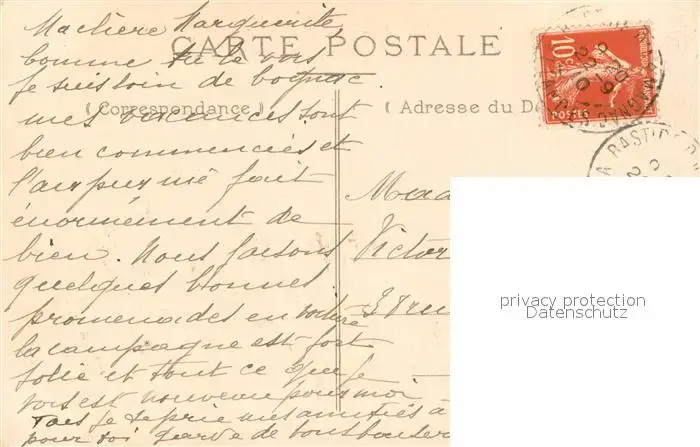 Ma chère Marguerite
CARTE POSTALE
comme tu le vois
je suis loin de
(Correspondance)
(Adresse du De
mes vacances sont
bien commencées et
l'air pur me fait
énormément de
bien. Nous faisons
quelques bonnes
promenades en voiture
la campagne est fort
jolie et tout ce que je
vois est nouveau pour moi
je te prie mes amitiés à
pour toi garde de tons baisers
Mad
Victor
3 rue
10c
POSTES
privacy protection
Datenschutz